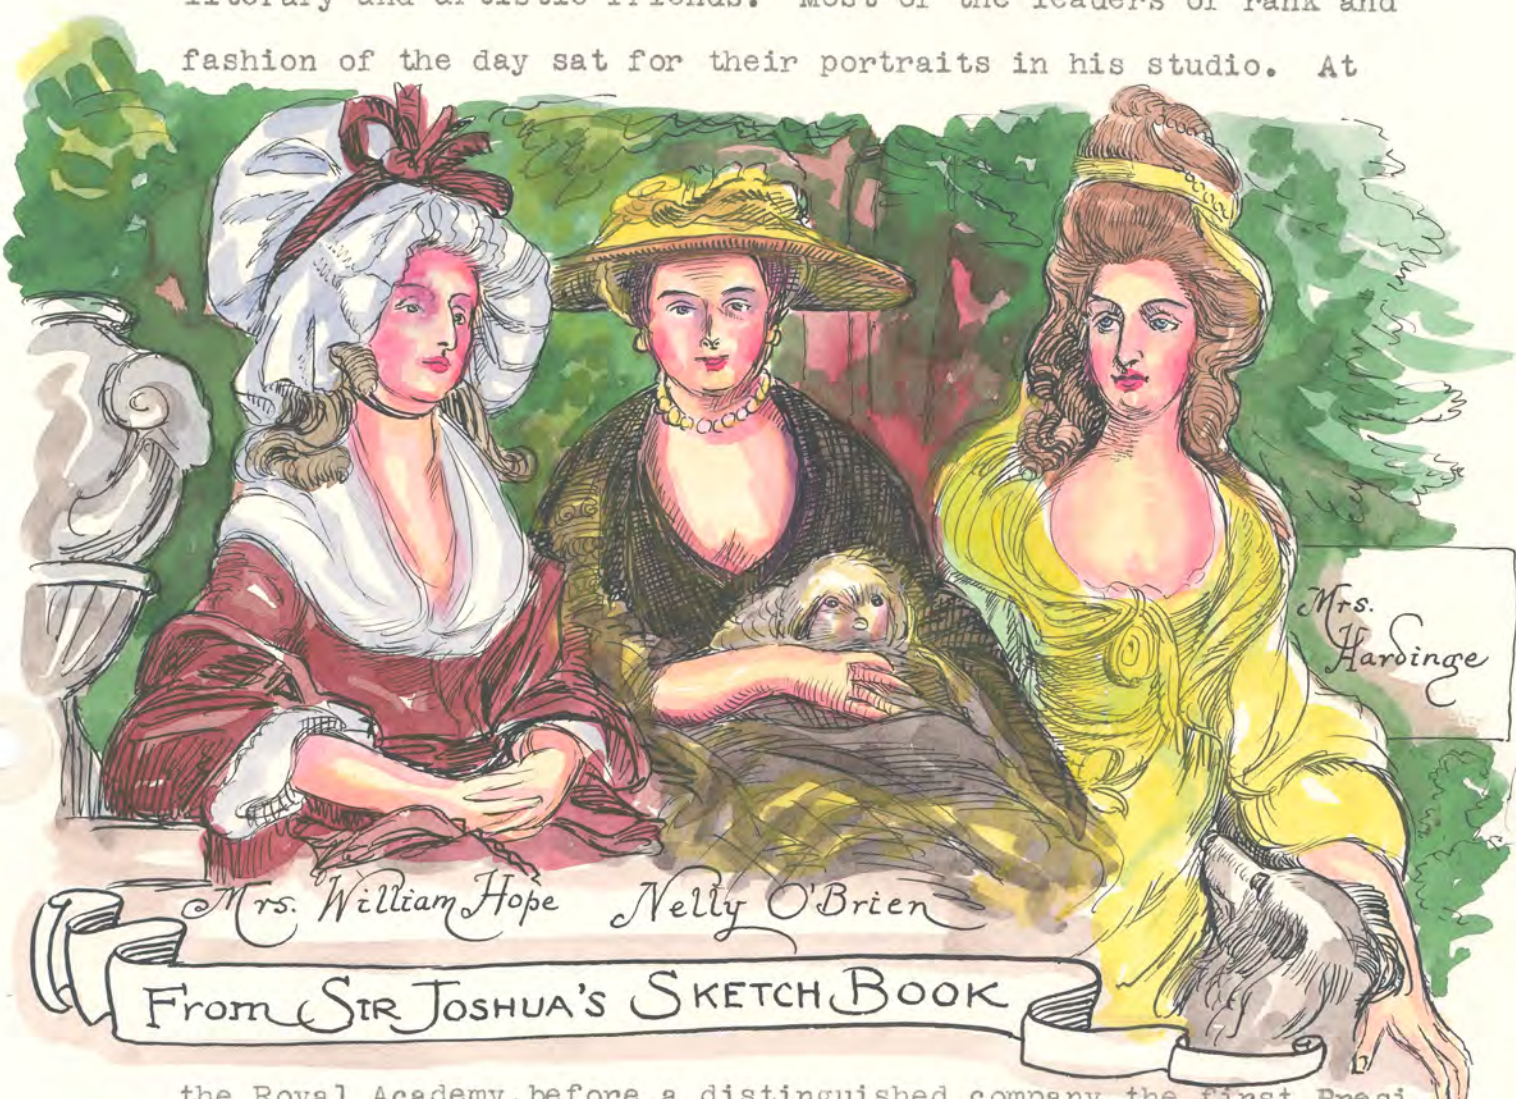 literary and artistic friends. Most of the leaders of rank and
fashion of the day sat for their portraits in his studio. At
Mrs.
Hardinge
Mrs. William Hope Nelly O'Brien
From SIR JOSHUA'S SKETCH BOOK
the Royal Academy before a distinguished company the first Presi